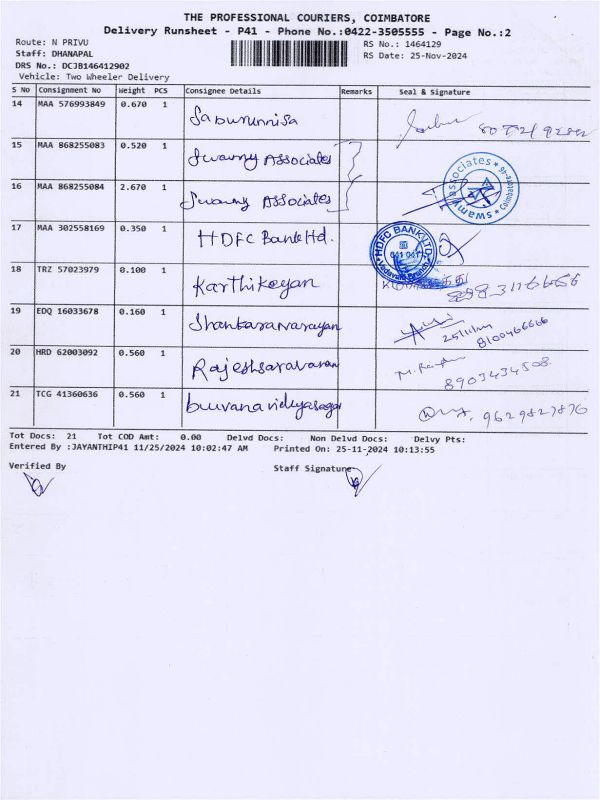 THE PROFESSIONAL COURIERS, COIMBATORE
Delivery Runsheet - P41 - Phone No.:0422-3505555 - Page No.:2
Route: N PRIVU
Staff: DHANAPAL
DRS No.: DCJB146412902
Vehicle: Two Wheeler Delivery
RS No.: 1464129
RS Date: 25-Nov-2024
S No Consignment No Weight PCS Consignee Details Remarks Seal & Signature
14 MAA 576993849 0.670 1 Saburunnisa
15 MAA 868255083 0.520 1 Swamy Associates
16 MAA 868255084 2.670 1 Swamy Associates swamy associates Coimbatore
17 MAA 302558169 0.350 1 HDFC Bank ltd. HDFC BANK LTD
18 TRZ 57023979 0.100 1 Karthikeyan
19 EDQ 16033678 0.160 1 Shankaranarayan 8100466666
20 HRD 62003092 0.560 1 Rajeshsaravanan 8903434508
21 TCG 41360636 0.560 1 buvvanavidyasagar 9629827876
Tot Docs: 21 Tot COD Amt: 0.00 Delvd Docs: Non Delvd Docs: Delvy Pts:
Entered By :JAYANTHIP41 11/25/2024 10:02:47 AM Printed On: 25-11-2024 10:13:55
Verified By Staff Signature